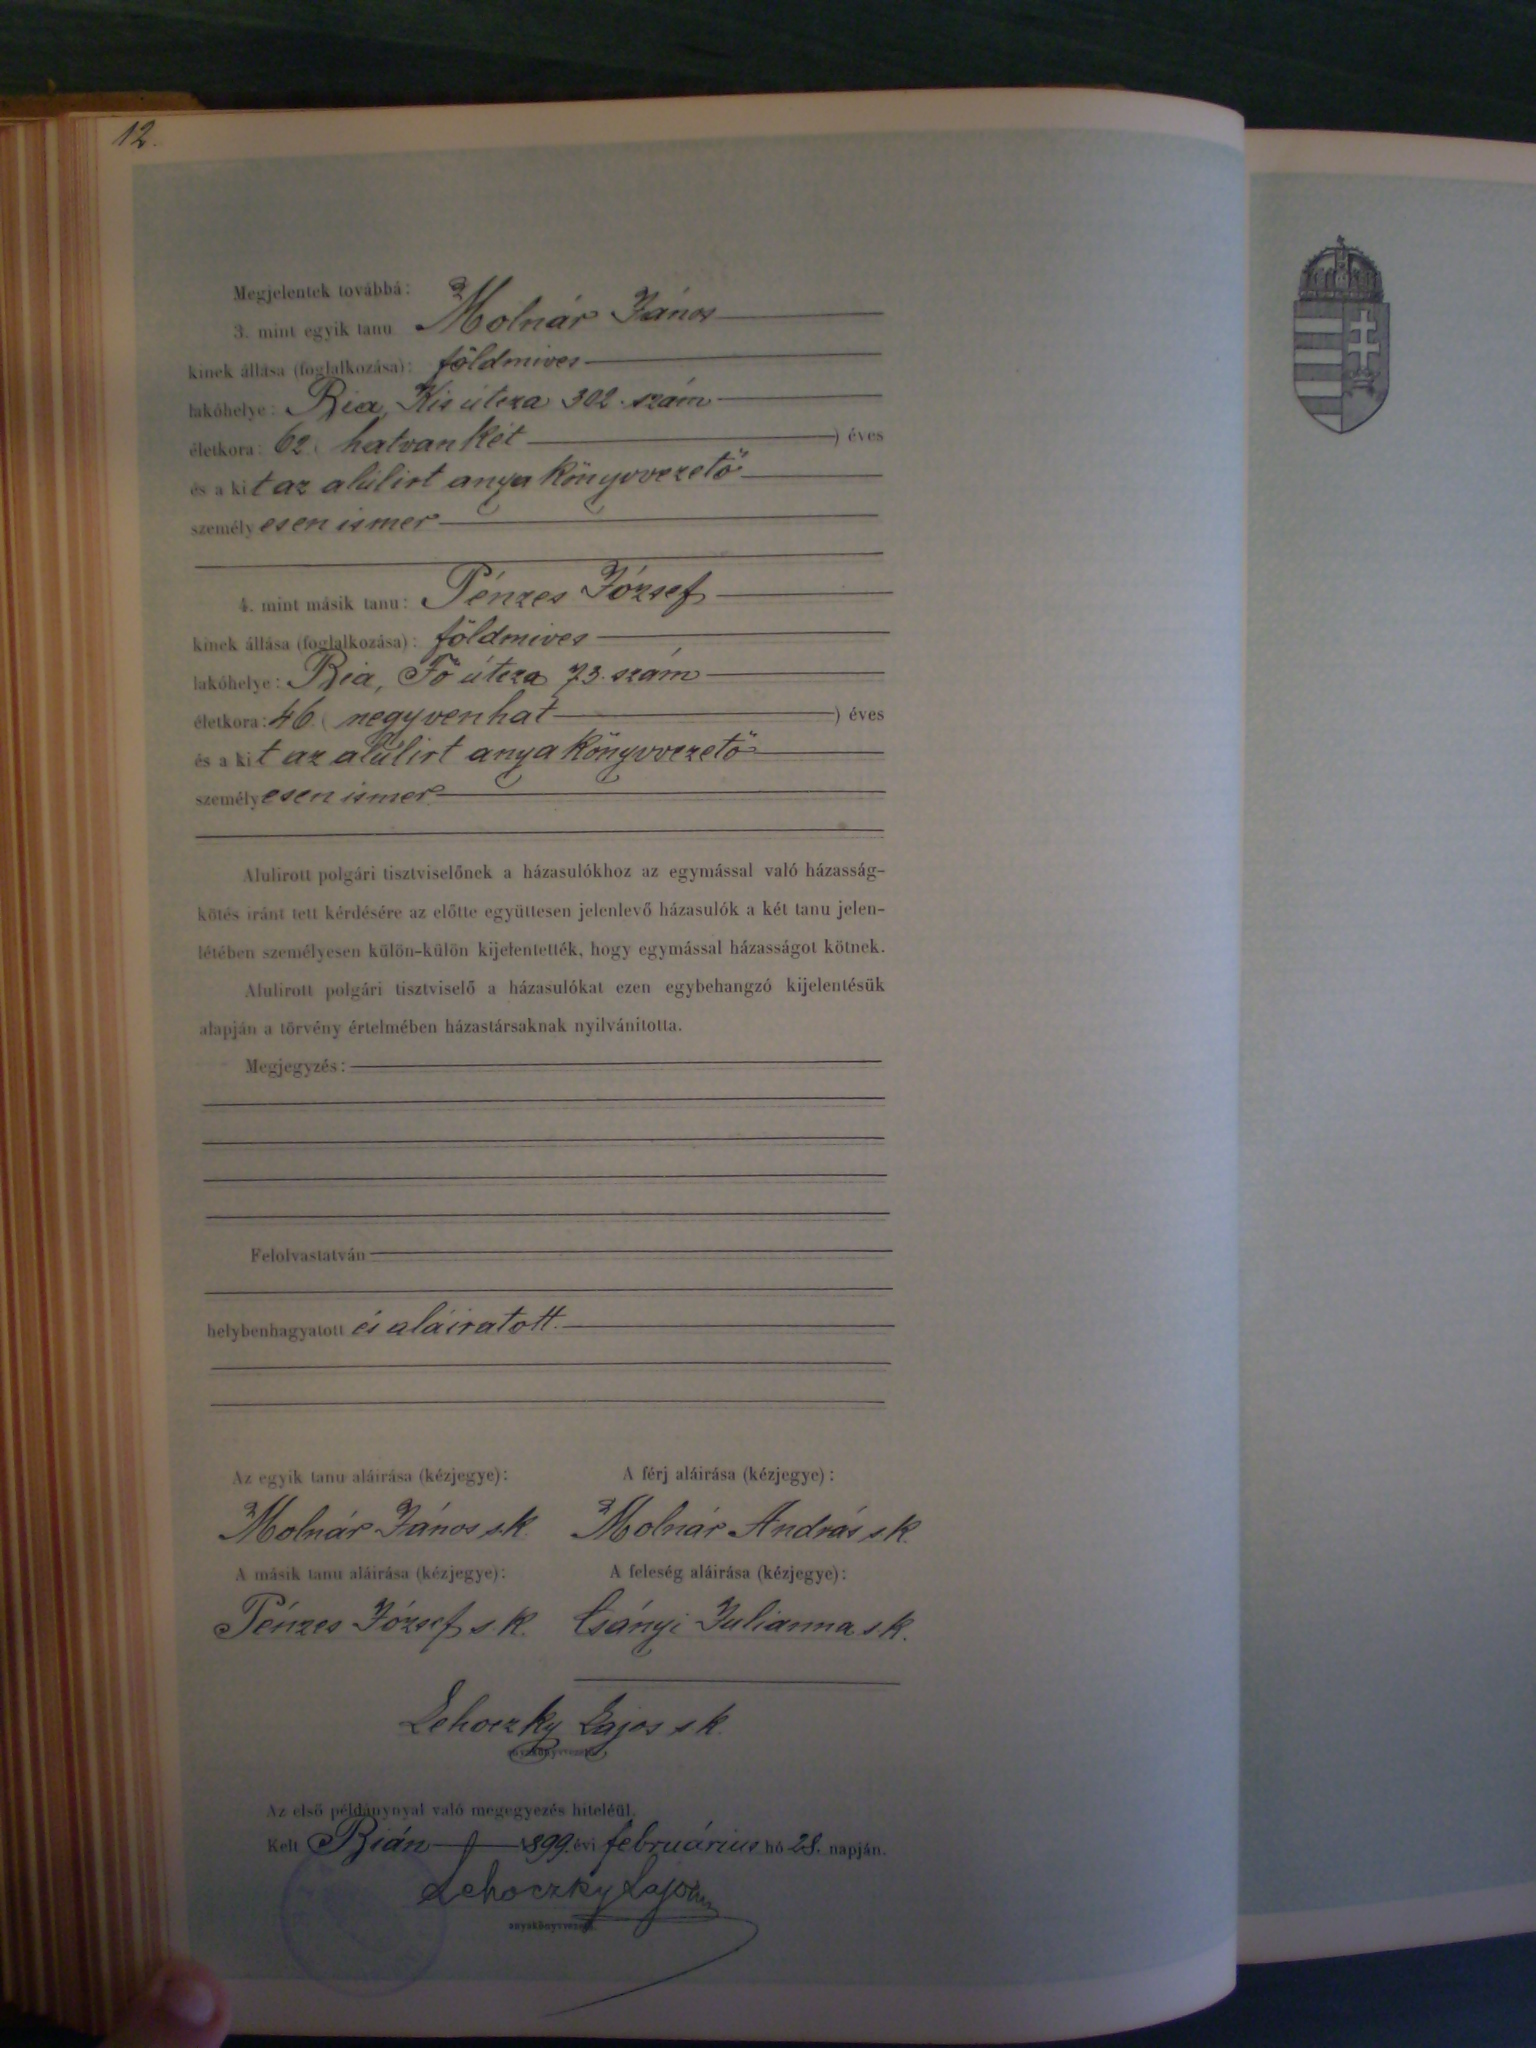 12.
Megjelentek továbbá:
3. mint egyik tanu Molnár János
kinek állása (foglalkozása): földmives
lakóhelye: Bia, Kis útcza 302. szám
életkora: 62 (hatvankét) éves
és a kit az alúlirt anyakönyvvezető
személyesen ismer
4. mint másik tanu: Pénzes József
kinek állása (foglalkozása): földmives
lakóhelye: Bia, Fő útcza 73. szám
életkora: 46. (negyvenhat) éves
és a kit az alúlirt anyakönyvvezető
személyesen ismer
Alulirott polgári tisztviselőnek a házasulókhoz az egymással való házasság-
kötés iránt tett kérdésére az előtte együttesen jelenlevő házasulók a két tanu jelen-
létében személyesen külön-külön kijelentették, hogy egymással házasságot kötnek.
Alulirott polgári tisztviselő a házasulókat ezen egybehangzó kijelentésük
alapján a törvény értelmében házastársaknak nyilvánitotta.
Megjegyzés:
Felolvastatván
helybenhagyatott és aláiratott.
Az egyik tanu aláirása (kézjegye): A férj aláirása (kézjegye):
Molnár János s.k. Molnár András s.k.
A másik tanu aláirása (kézjegye): A feleség aláirása (kézjegye):
Pénzes József s.k. Csányi Julianna s.k.
Lehoczky Lajos s.k.
anyakönyvvezető.
Az első példánynyal való megegyezés hiteléül.
Kelt Bián 1899. évi februárius hó 28. napján.
Lehoczky Lajos
anyakönyvvezető.